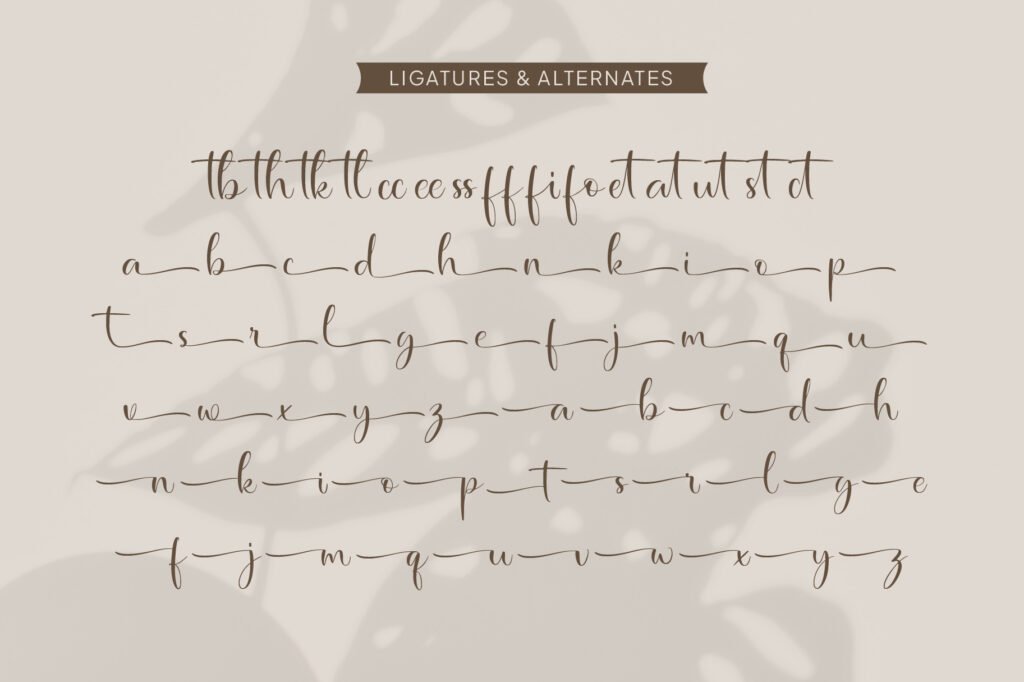 LIGATURES & ALTERNATES
tb th tk tl cc ee ss ff fi fo et at ut st ct
a b c d h n k i o p
t s r l g e f j m q u
v w x y z a b c d h
n k i o p t s r l g e
f j m q u v w x y z